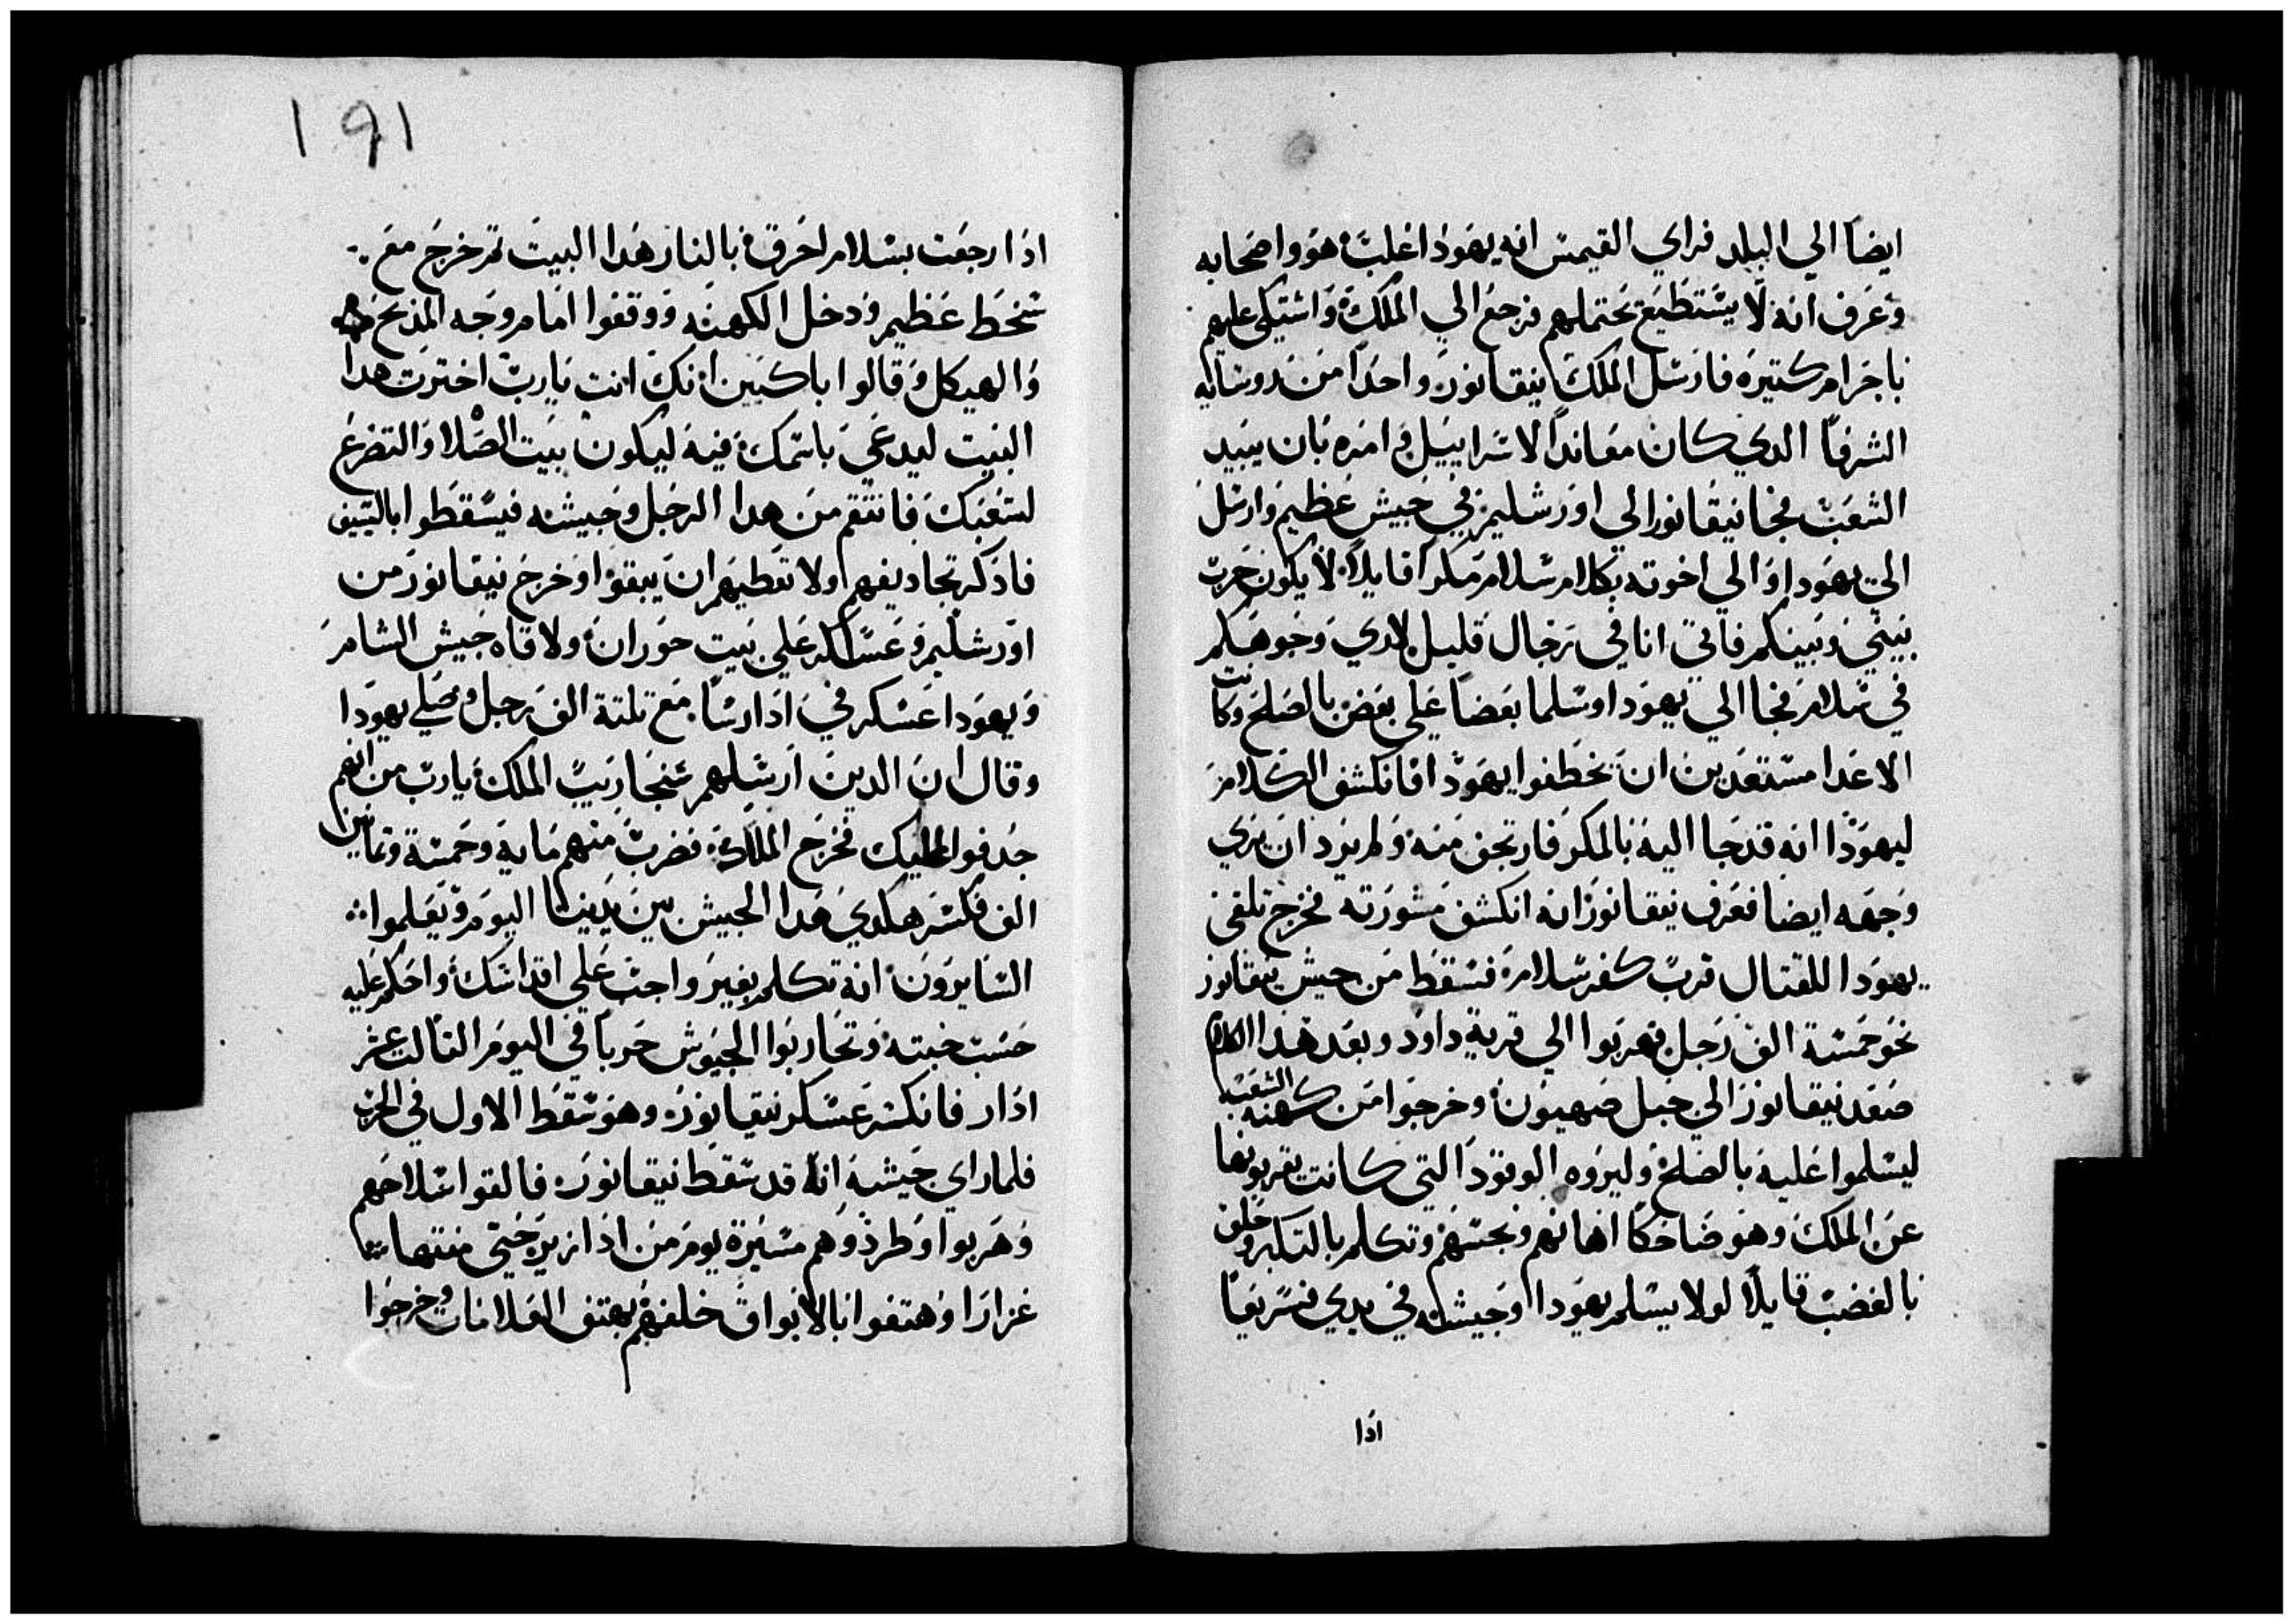 ايضا الي البلد فراي القيمس انه يهودا غلب هو واصحابه
وعرف انه لا يستطيع يحتملهم فرجع الي الملك واشتكي عليهم
باجرام كتيره فارسل الملك نيقانور واحدا من روسايه
الشرفا الدي كان معاندا لاسراييل وامره بان يبيد
الشعب فجا نيقانور الي اورشليم في جيش عظيم وارسل
الي يهودا والي اخوته بكلام سلام مكرا قايلا لا يكون حرب
بيني وبينكم فاتي انا في رجال قليل لاري وجوهكم
في سلام فجا الي يهودا وسلما بعضا علي بعض بالصلح وكانت
الاعدا مستعدين ان يخطفوا يهودا فانكشف الكلام
ليهودا انه قد جا اليه بالمكر فارتجف منه ولم يرد ان يري
وجهه ايضا فعرف نيقانور انه انكشف مشورته فخرج تلقي
يهودا للقتال قرب كفر سلامه فسقط من جيش نيقانور
نحو خمسة الف رجل فهربوا الي قرية داود وبعد هذا الكلام
صعد نيقانور الي جبل صهيون وخرجوا من كهنه الشعب
ليسلموا عليه بالصلح وليروه الوقود التي كانت يقربونها
عن الملك وهو ضاحكا اهانهم ونجسهم وتكلم بالتكبر وحلف
بالغضب قايلا لولا يسلم يهودا وجيشه في يدي فسريعا
ادا
191
ادا رجعت بسلام احرق بالنار هدا البيت تم خرج مع
سخط عظيم ودخل الكهنه ووقفوا امام وجه المدبح
والهيكل وقالوا باكيين انك انت يارب اخترت هدا
البيت ليدعي باسمك فيه ليكون بيت الصلا والتضرع
لشعبك فانتقم من هدا الرجل وجيشه فيسقطوا بالسيف
فادكر تجاديفهم ولا تعطيهم ان يبقوا وخرج نيقانور من
اورشليم وعسكر علي بيت حوران ولاقاه جيش الشام
ويهودا عسكر في ادارسا مع تلتة الف رجل وصلي يهودا
وقال ان الدين ارسلهم سنجاريب الملك يارب من انهم
جدفوا عليك فخرج الملاك فضرب منهم مايه وخمسة وتمانين
الف فكسر هكدي هدا الجيش بين يدينا اليوم ويعلموا
السايرون انه تكلم بغير واجب علي اقداسك واحكم عليه
حسب خبته وتحاربوا الجيوش حربا في اليوم التالت عشر
ادار فانكسر عسكر نيقانور وهو سقط الاول في الحرب
فلما راي جيشه انه قد سقط نيقانور فالقوا سلاحهم
وهربوا وطردوهم مسيرة يوم من ادازير حتي منتها
غزارا وهتفوا بالابواق خلفهم بهتف العلامات وخرجوا